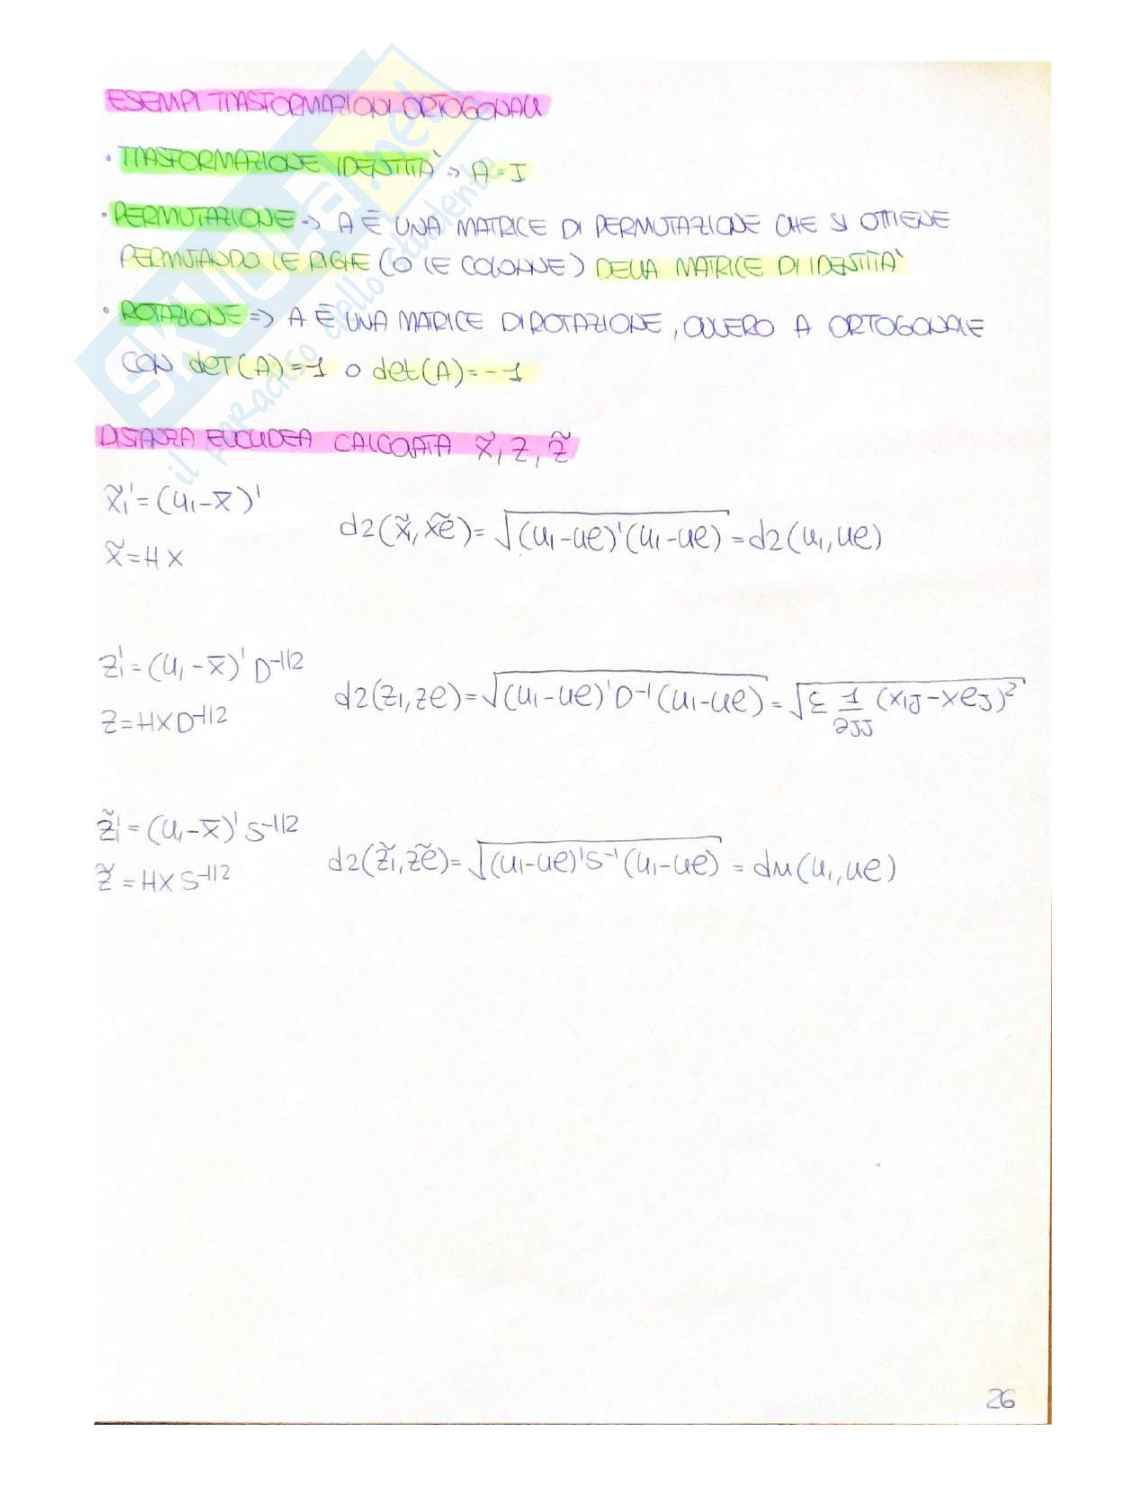 ESEMPI TRASFORMAZIONI ORTOGONALI
• TRASFORMAZIONE IDENTITÀ => A = I
• PERMUTAZIONE => A È UNA MATRICE DI PERMUTAZIONE CHE SI OTTIENE
PERMUTANDO LE RIGHE (O LE COLONNE) DELLA MATRICE DI IDENTITÀ
• ROTAZIONE => A È UNA MATRICE DI ROTAZIONE, OVVERO A ORTOGONALE
CON det(A)=1 o det(A)=-1
DISTANZA EUCLIDEA CALCOLATA X̃, Z, Z̃
x̃i' = (ui-x̄)'
d2(x̃i, x̃e) = √(ui-ue)'(ui-ue) = d2(ui, ue)
X̃ = HX
zi' = (ui-x̄)' D^-1/2
d2(zi, ze) = √(ui-ue)'D^-1(ui-ue) = √Σ 1/∂JJ (xiJ-xeJ)^2
Z = HXD^-1/2
z̃i' = (ui-x̄)' S^-1/2
d2(z̃i, z̃e) = √(ui-ue)'S^-1(ui-ue) = dM(ui, ue)
Z̃ = HXS^-1/2
26
SKUOLA.net
il paradiso dello studente